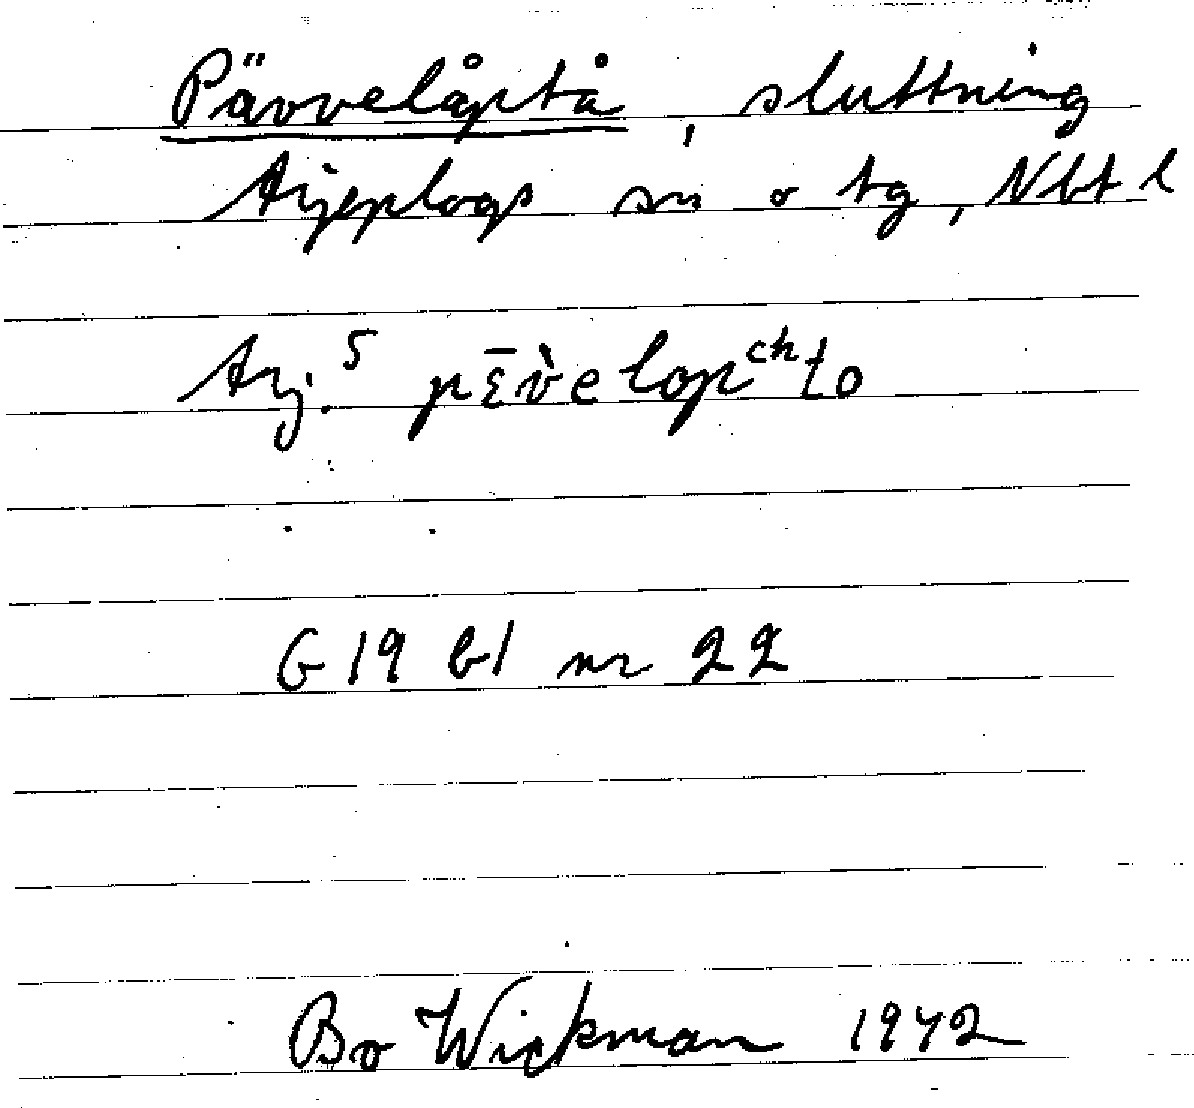 Pävvelåptå, sluttning
Arjeplogs sn o tg, Nbt l
Arj.⁵ pε̄v̀elopᶜʰto
G 19 bl nr 22
Bo Wickman 1942